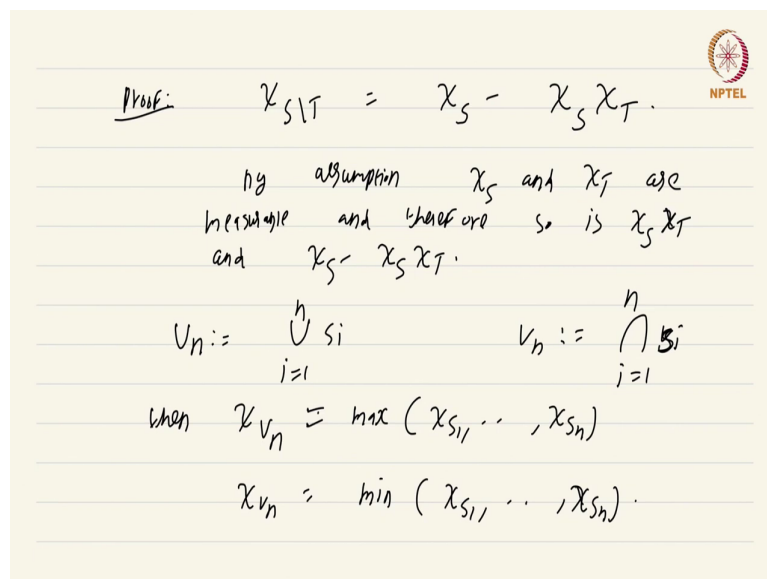 NPTEL
Proof:- χ_{S\T} = χ_S - χ_S χ_T.
by assumption χ_S and χ_T are
measurable and therefore so is χ_S χ_T
and χ_S - χ_S χ_T.
U_n := ⋃_{i=1}^{n} S_i V_n := ⋂_{i=1}^{n} S_i
then χ_{U_n} = max (χ_{S_1}, .. , χ_{S_n})
χ_{V_n} = min (χ_{S_1}, .. , χ_{S_n}).